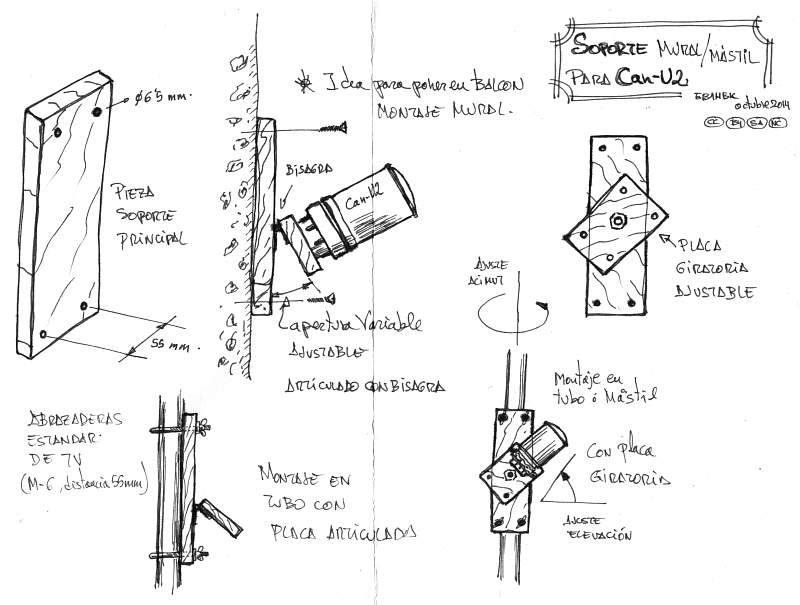 SOPORTE MURAL/MÁSTIL
PARA Can-V2
EB1HBK
octubre 2014
CC BY SA NC
* Idea para poner en BALCON
MONTAJE MURAL.
Ø 6'5 mm.
PIEZA
SOPORTE
PRINCIPAL
55 mm.
BISAGRA
Can-V2
apertura Variable
AJUSTABLE
ARTICULADO CON BISAGRA
PLACA
GIRATORIA
AJUSTABLE
AJUSTE
AZIMUT
ABRAZADERAS
ESTANDAR
DE TV
(M-6, distancia 55mm)
MONTAJE EN
TUBO CON
PLACA ARTICULADA
Montaje en
tubo ó Mástil
Con placa
GIRATORIA
AJUSTE
ELEVACIÓN